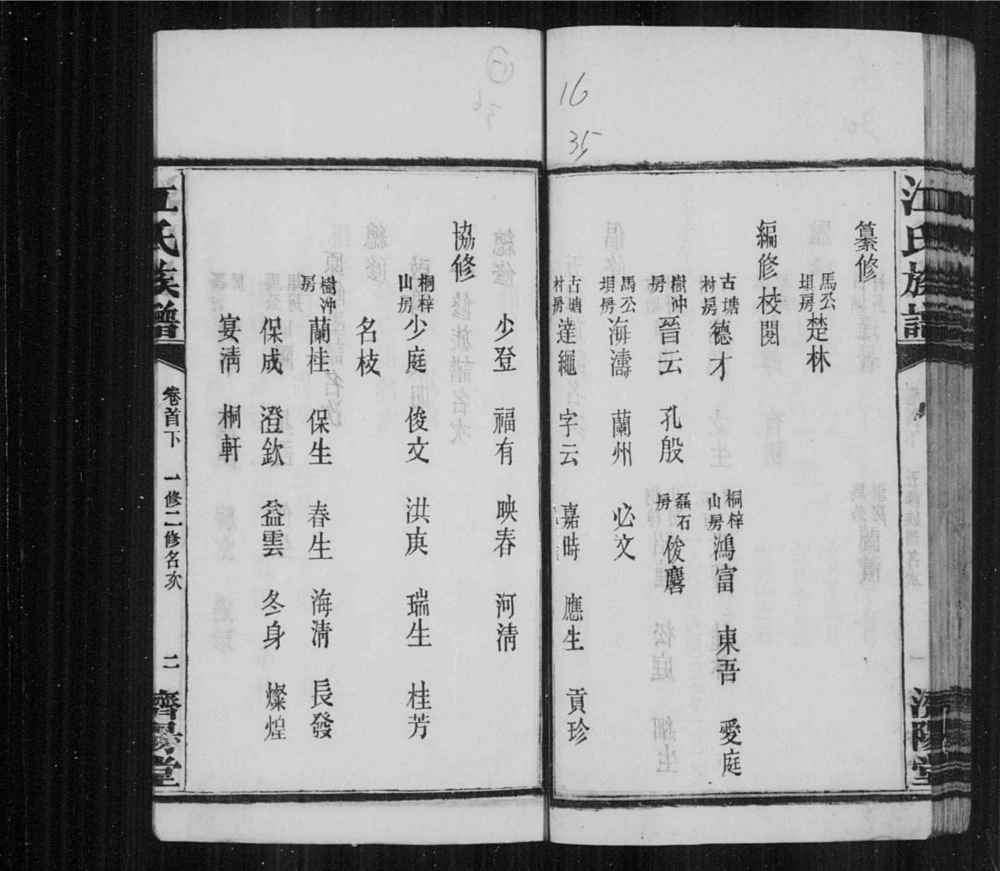 16
35
江氏族譜
濟陽堂
纂修
馬公垻房楚林
編修校閱
古塘村房德才 桐梓山房鴻富 東吾 愛庭
樾沖房晉云 孔殷 磊石房俊麐
馬公垻房海濤 蘭州 必文
古塘村房達繩 字云 嘉時 應生 貢珍
少登 福有 映春 河清
協修
桐梓山房少庭 俊文 洪庚 瑞生 桂芳
名枝
樾沖房蘭桂 保生 春生 海清 長發
保成 澄欽 益雲 冬身 燦煌
宴清 桐軒
江氏族譜 卷首下 一修二修名次 二 濟陽堂